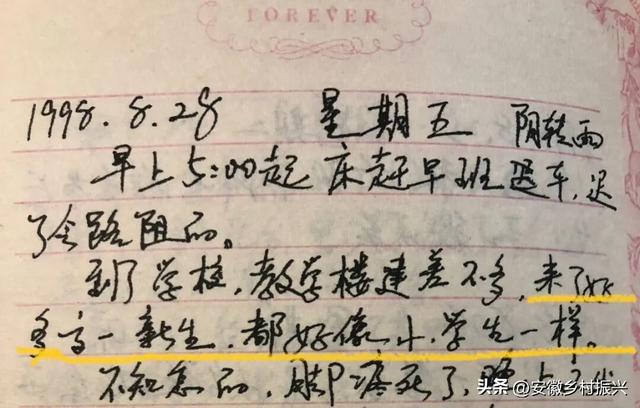 FOREVER
1998.8.28 星期五 阴转雨
早上5:00起床赶早班迟车,迟
了会路阻的。
到了学校,教学楼建差不多,来了好
多高一新生,都好像小学生一样。
不知怎的,脚疼死了,晚上
头条 @安徽乡村振兴